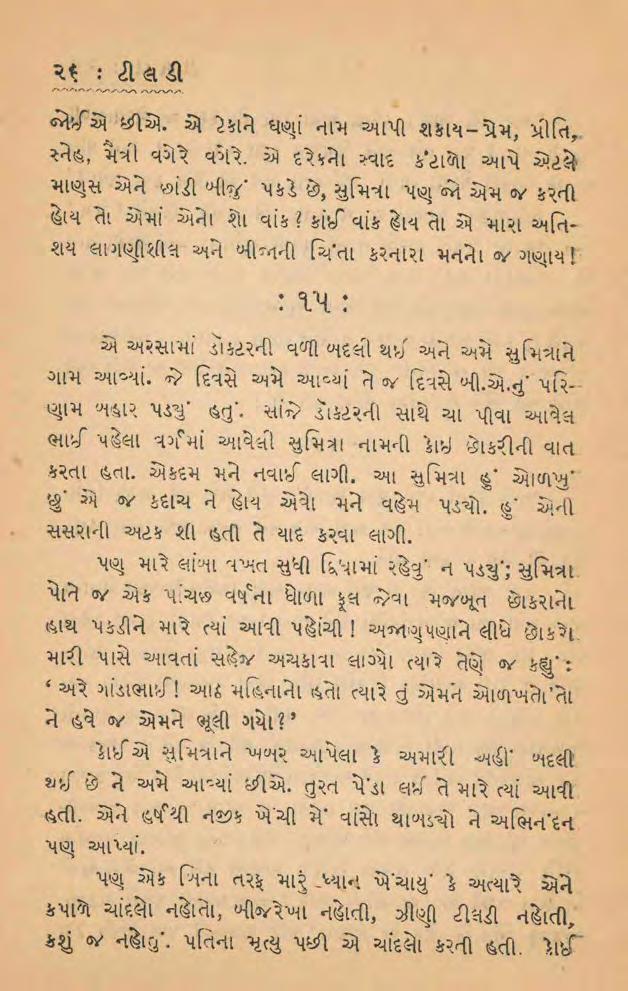 ૨૬ : ટીલડી
જોઈએ છીએ. એ ટેકાને ઘણાં નામ આપી શકાય–પ્રેમ, પ્રીતિ,
સ્નેહ, મૈત્રી વગેરે વગેરે. એ દરેકનો સ્વાદ કંટાળો આપે એટલે
માણસ એને છાંડી બીજું પકડે છે, સુમિત્રા પણ જો એમ જ કરતી
હોય તો એમાં એનો શો વાંક? કાંઈ વાંક હોય તો એ મારા અતિ-
શય લાગણીશીલ અને બીજાની ચિંતા કરનારા મનનો જ ગણાય!
: ૧૫ :
એ અરસામાં ડૉક્ટરની વળી બદલી થઈ અને અમે સુમિત્રાને
ગામ આવ્યાં. જે દિવસે અમે આવ્યાં તે જ દિવસે બી.એ.નું પરિ-
ણામ બહાર પડ્યું હતું. સાંજે ડૉક્ટરની સાથે ચા પીવા આવેલ
ભાઈ પહેલા વર્ગમાં આવેલી સુમિત્રા નામની કોઇ છોકરીની વાત
કરતા હતા. એકદમ મને નવાઈ લાગી. આ સુમિત્રા હું ઓળખું
છું એ જ કદાચ ને હોય એવો મને વહેમ પડ્યો. હું એની
સસરાની અટક શી હતી તે યાદ કરવા લાગી.
પણ મારે લાંબા વખત સુધી દ્વિધામાં રહેવું ન પડ્યું; સુમિત્રા
પોતે જ એક પાંચછ વર્ષના ધોળા ફૂલ જેવા મજબૂત છોકરાનો
હાથ પકડીને મારે ત્યાં આવી પહોંચી! અજાણપણાને લીધે છોકરો
મારી પાસે આવતાં સહેજ અચકાવા લાગ્યો ત્યારે તેણે જ કહ્યું:
‘અરે ગાંડાભાઈ! આઠ મહિનાનો હતો ત્યારે તું એમને ઓળખતો’તો
ને હવે જ એમને ભૂલી ગયો?’
કોઈએ સુમિત્રાને ખબર આપેલા કે અમારી અહીં બદલી
થઈ છે ને અમે આવ્યાં છીએ. તુરત પેંડા લઈ તે મારે ત્યાં આવી
હતી. એને હર્ષથી નજીક ખેંચી મેં વાંસો થાબડ્યો ને અભિનંદન
પણ આપ્યાં.
પણ એક બિના તરફ મારું ધ્યાન ખેંચાયું કે અત્યારે એને
કપાળે ચાંદલો નહોતો, બીજરેખા નહોતી, ઝીણી ટીલડી નહોતી,
કશું જ નહોતું. પતિના મૃત્યુ પછી એ ચાંદલો કરતી હતી. કોઈ